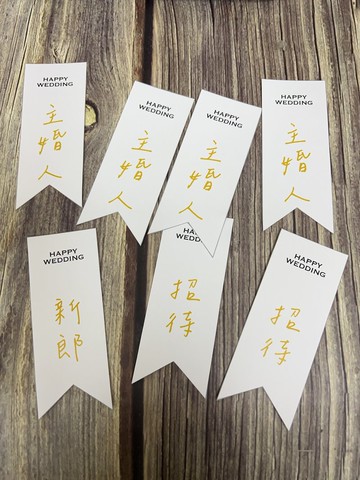 HAPPY
WEDDING
主婚人
HAPPY
WEDDING
主婚人
HAPPY
WEDDING
主婚人
HAPPY
WEDDING
主婚人
HAPPY
WEDDING
新郎
WEDDING
招待
HAPPY
WEDDING
招待